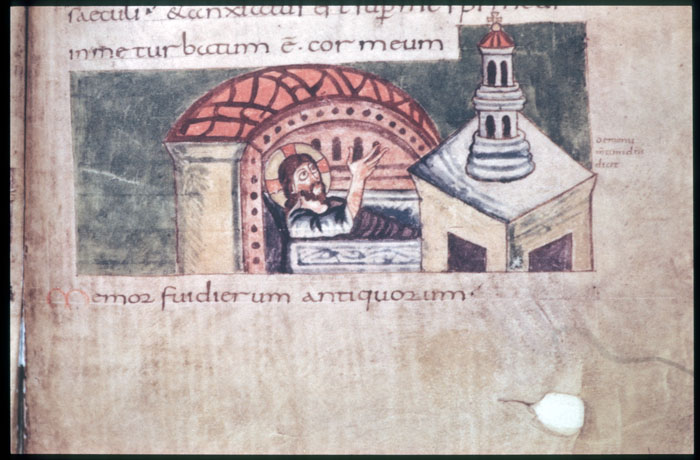 saeculi · & anxiatus ē sup me sp̄s meus
inme turbatum ē · cor meum
Memor fui dierum antiquorum ·